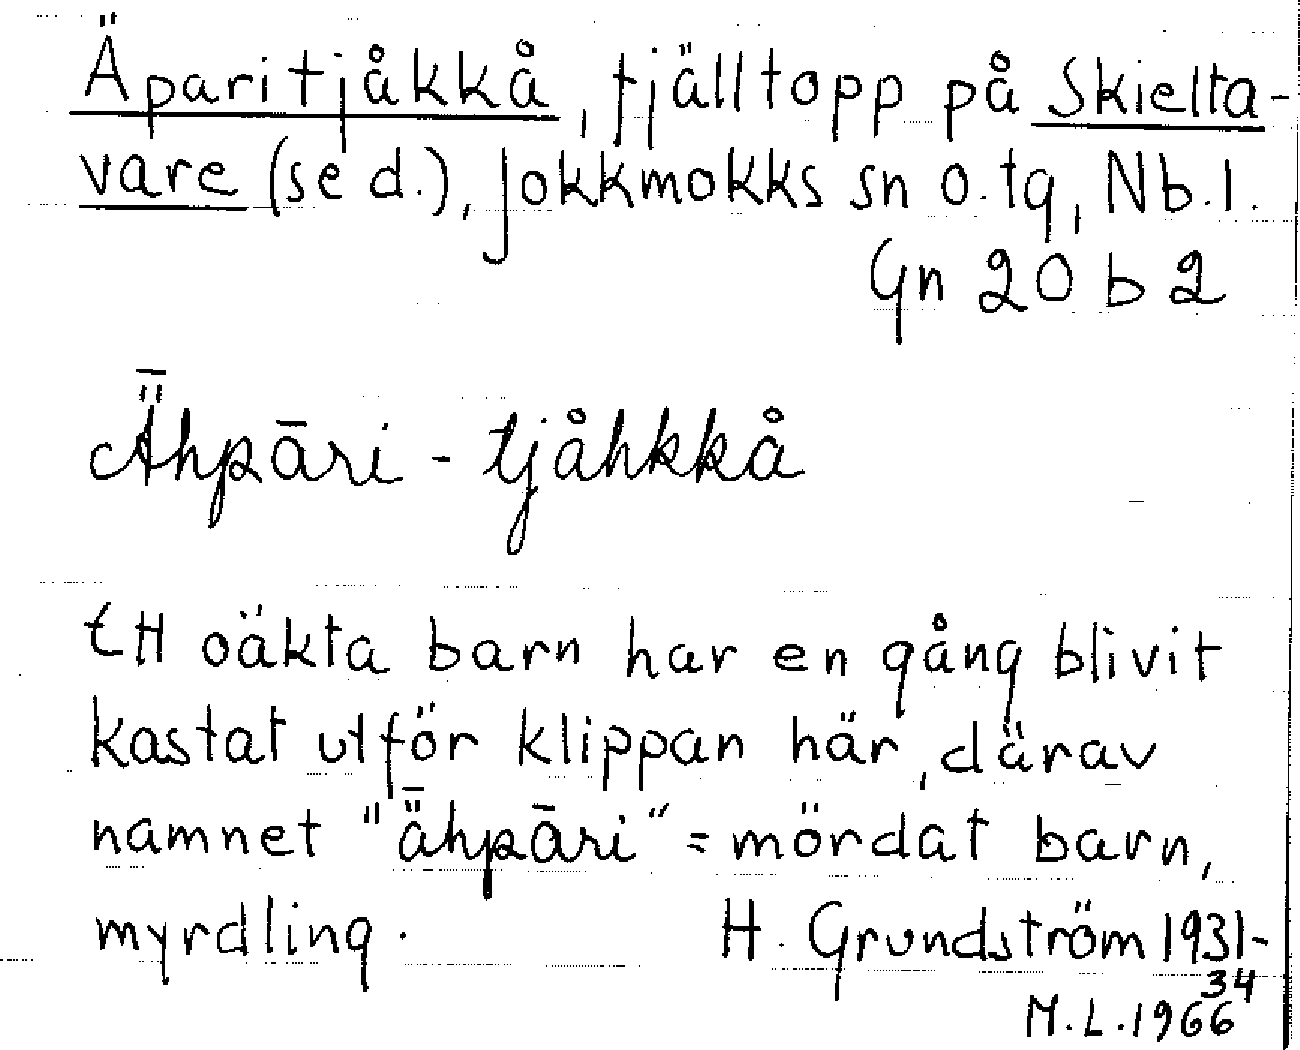 Äparitjåkkå, fjälltopp på Skielta-
vare (se d.), Jokkmokks sn o. tg, Nb. l.
Gn 20 b 2
Ǟhpāri - tjåhkkå
Ett oäkta barn har en gång blivit
kastat utför klippan här, därav
namnet "ǟhpāri" = mördat barn,
myrdling. H. Grundström 1931-
34
M.L. 1966